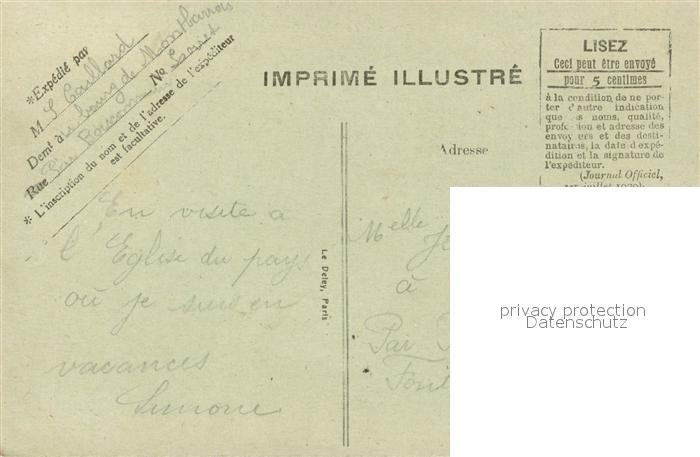 *Expédié par
M S Gaillard
Demt à au bourg de Montbarrois
No
Rue Par Boiscommun Loiret
* L'inscription du nom et de l'adresse de l'expéditeur
est facultative.
IMPRIMÉ ILLUSTRÉ
LISEZ
Ceci peut être envoyé
pour 5 centimes
à la condition de ne por-
ter d'autre indication
que les noms, qualité,
profession et adresse des
envoyeurs et des desti-
nataires, la date d'expé-
dition et la signature de
l'expéditeur.
(Journal Officiel,
Adresse
En visite à
l'Eglise du pays
où je suis en
vacances
Simone
Le Deley, Paris
Melle
à
Par
Font
privacy protection
Datenschutz